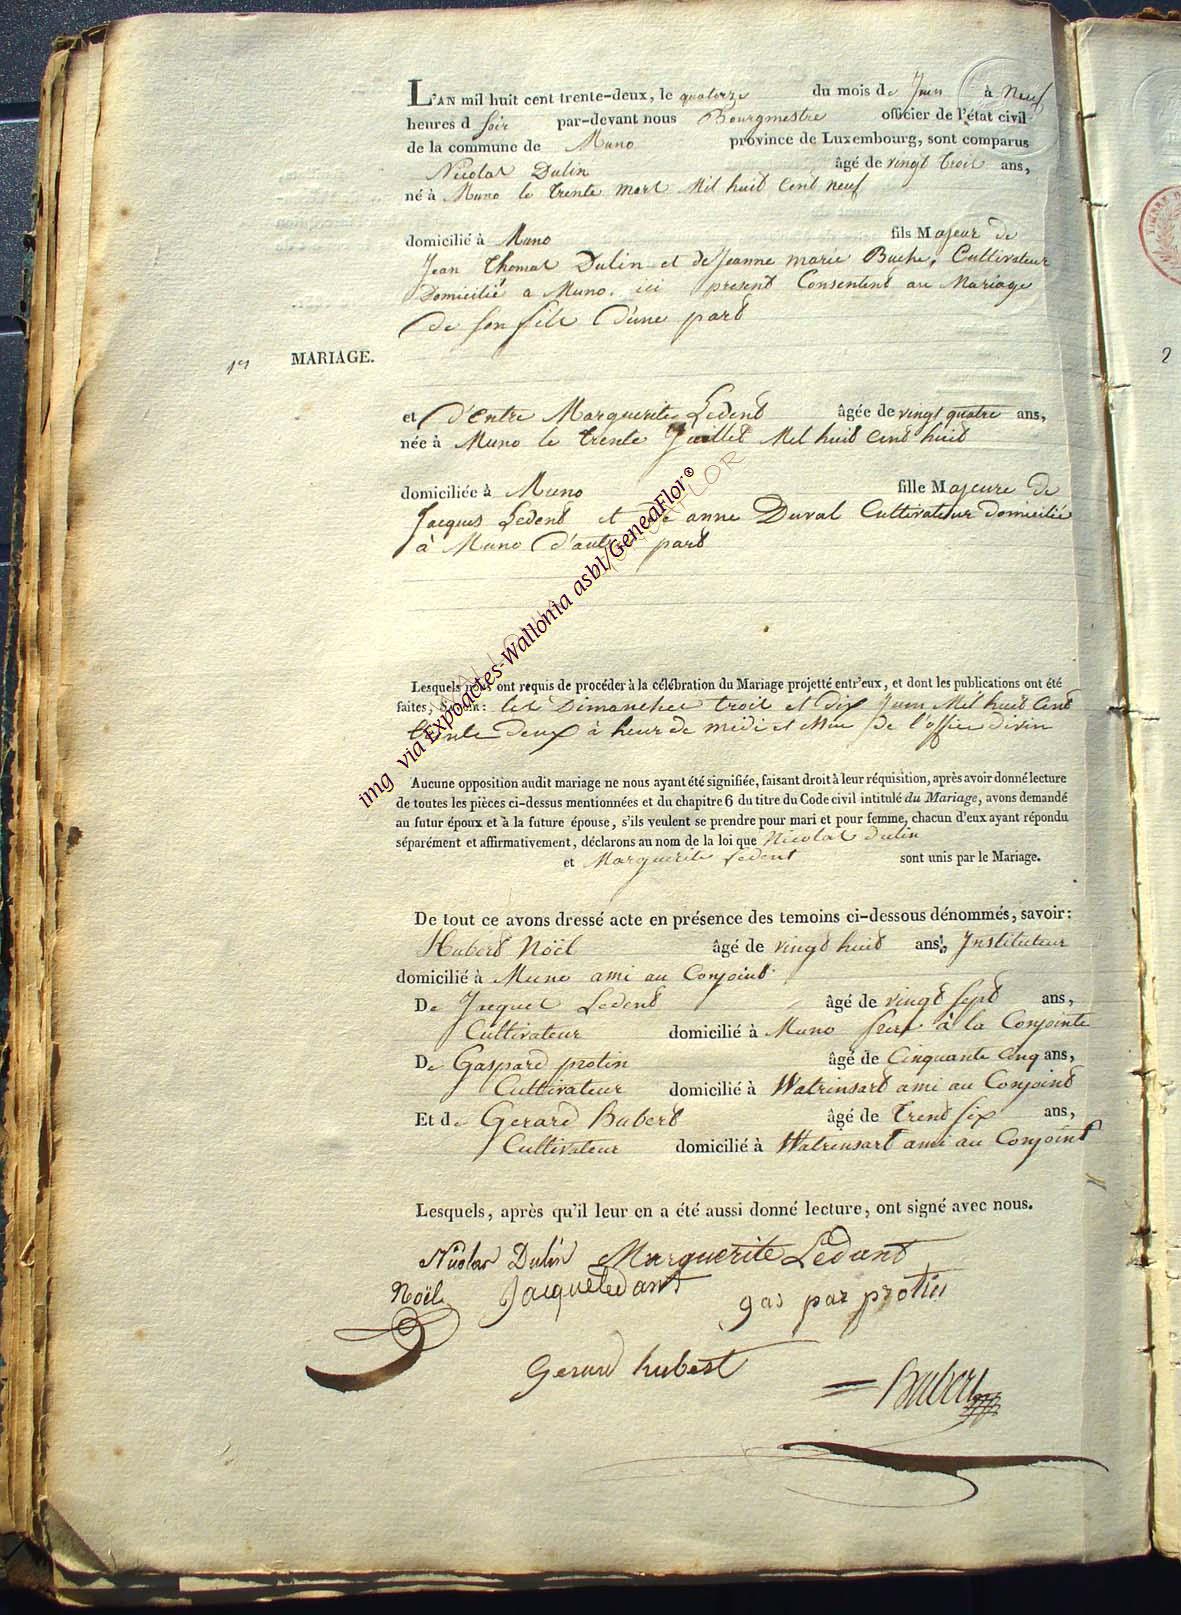 L'AN mil huit cent trente-deux, le quatorze du mois de Juin à Neuf
heures d soir par-devant nous Bourgmestre officier de l'état civil
de la commune de Muno province de Luxembourg, sont comparus
Nicolas Dulin âgé de vingt trois ans,
né à Muno le trente mars Mil huit cent neuf
domicilié à Muno fils Majeur de
Jean Thomas Dulin et de Jeanne marie Buche, Cultivateur
Domicilié a Muno. ici present Consentent au Mariage
de son fils D'une part
1er MARIAGE.
et D'Entre Marguerite Ledent âgée de vingt quatre ans,
née à Muno le trente Juillet Mil huit cent huit
domiciliée à Muno fille Majeure de
Jacques Ledent et de anne Duval Cultivateur domicilié
à Muno D'autre part
Lesquels nous ont requis de procéder à la célébration du Mariage projetté entr'eux, et dont les publications ont été
faites, Savoir: les Dimanches trois et dix Juin Mil huit Cent
trente deux à heur de midi et de l'office divin
Aucune opposition audit mariage ne nous ayant été signifiée, faisant droit à leur réquisition, après avoir donné lecture
de toutes les pièces ci-dessus mentionnées et du chapitre 6 du titre du Code civil intitulé du Mariage, avons demandé
au futur époux et à la future épouse, s'ils veulent se prendre pour mari et pour femme, chacun d'eux ayant répondu
séparément et affirmativement, déclarons au nom de la loi que Nicolas dulin
et Marguerite Ledent sont unis par le Mariage.
De tout ce avons dressé acte en présence des temoins ci-dessous dénommés, savoir:
Hubert Noël âgé de vingt huit ans, Instituteur
domicilié à Muno ami au Conjoint
De Jacques Ledent âgé de vingt sept ans,
Cultivateur domicilié à Muno à la Conjointe
De Gaspard protin âgé de Cinquante cinq ans,
Cultivateur domicilié à Watrinsart ami au Conjoint
Et de Gerard Hubert âgé de trent six ans,
Cultivateur domicilié à Watrinsart ami au Conjoint
Lesquels, après qu'il leur en a été aussi donné lecture, ont signé avec nous.
Nicolas Dulin Marguerite Ledant
Noël Jacque Ledant gas par protin
Gerard hubert
Hubert
img via Expoactes-Wallonia asbl/GeneaFlor®
2